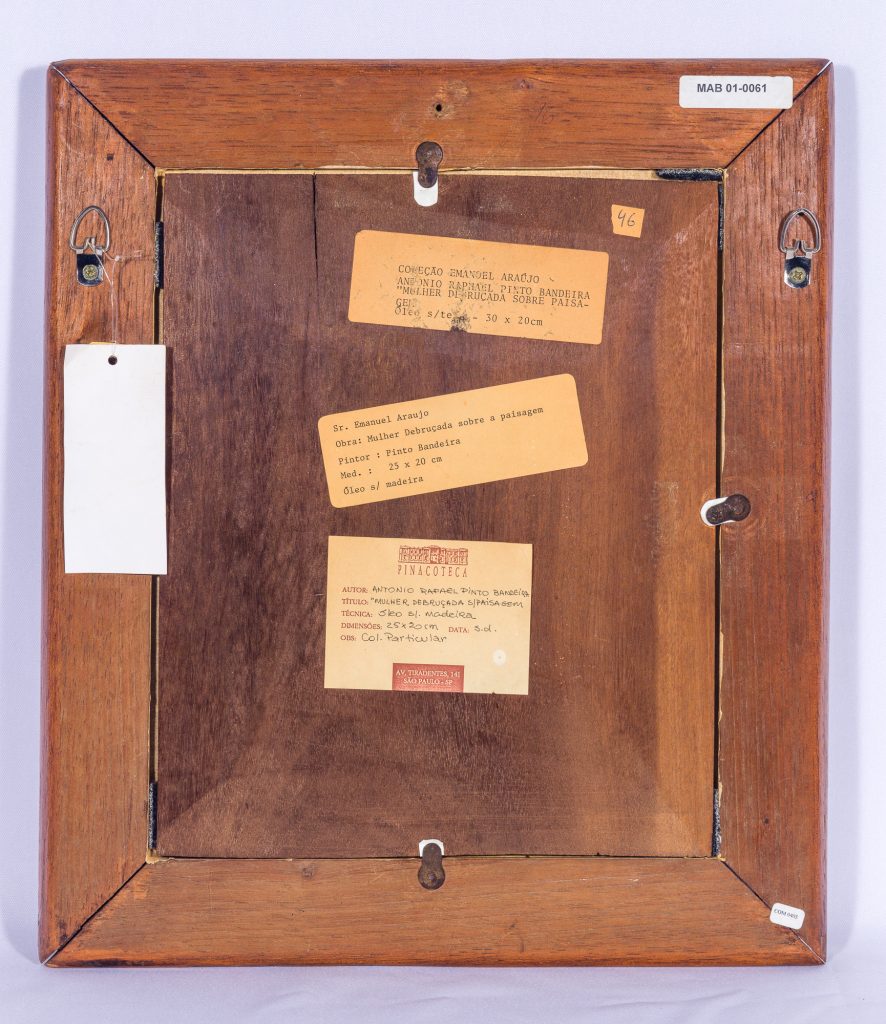 MAB 01-0061
46
COLEÇÃO EMANOEL ARAÚJO
ANTONIO RAPHAEL PINTO BANDEIRA
"MULHER DEBRUÇADA SOBRE PAISA-
GEM
Óleo s/tela - 30 x 20cm
Sr. Emanuel Araujo
Obra: Mulher Debruçada sobre a paisagem
Pintor : Pinto Bandeira
Med. : 25 x 20 cm
Óleo s/ madeira
PINACOTECA
AUTOR: ANTONIO RAFAEL PINTO BANDEIRA
TÍTULO: "MULHER DEBRUÇADA S/PAISAGEM
TÉCNICA: Óleo s/. madeira
DIMENSÕES: 25x20cm DATA: s.d.
OBS: Col. Particular
AV. TIRADENTES, 141
SÃO PAULO - SP